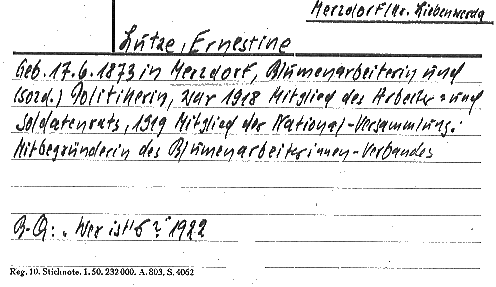 Merzdorf/Kr. Liebenwerda
Lutze, Ernestine
Geb. 17.6.1873 in Merzdorf, Blumenarbeiterin und
(sozd.) Politikerin, war 1918 Mitglied des Arbeiter- und
Soldatenrats, 1919 Mitglied der National-Versammlung.
Mitbegründerin des Blumenarbeiterinnen-Verbandes
B-Q: "Wer ist's?" 1922
Reg. 10. Stichnote. 1. 50. 232 000. A. 803, S. 4062